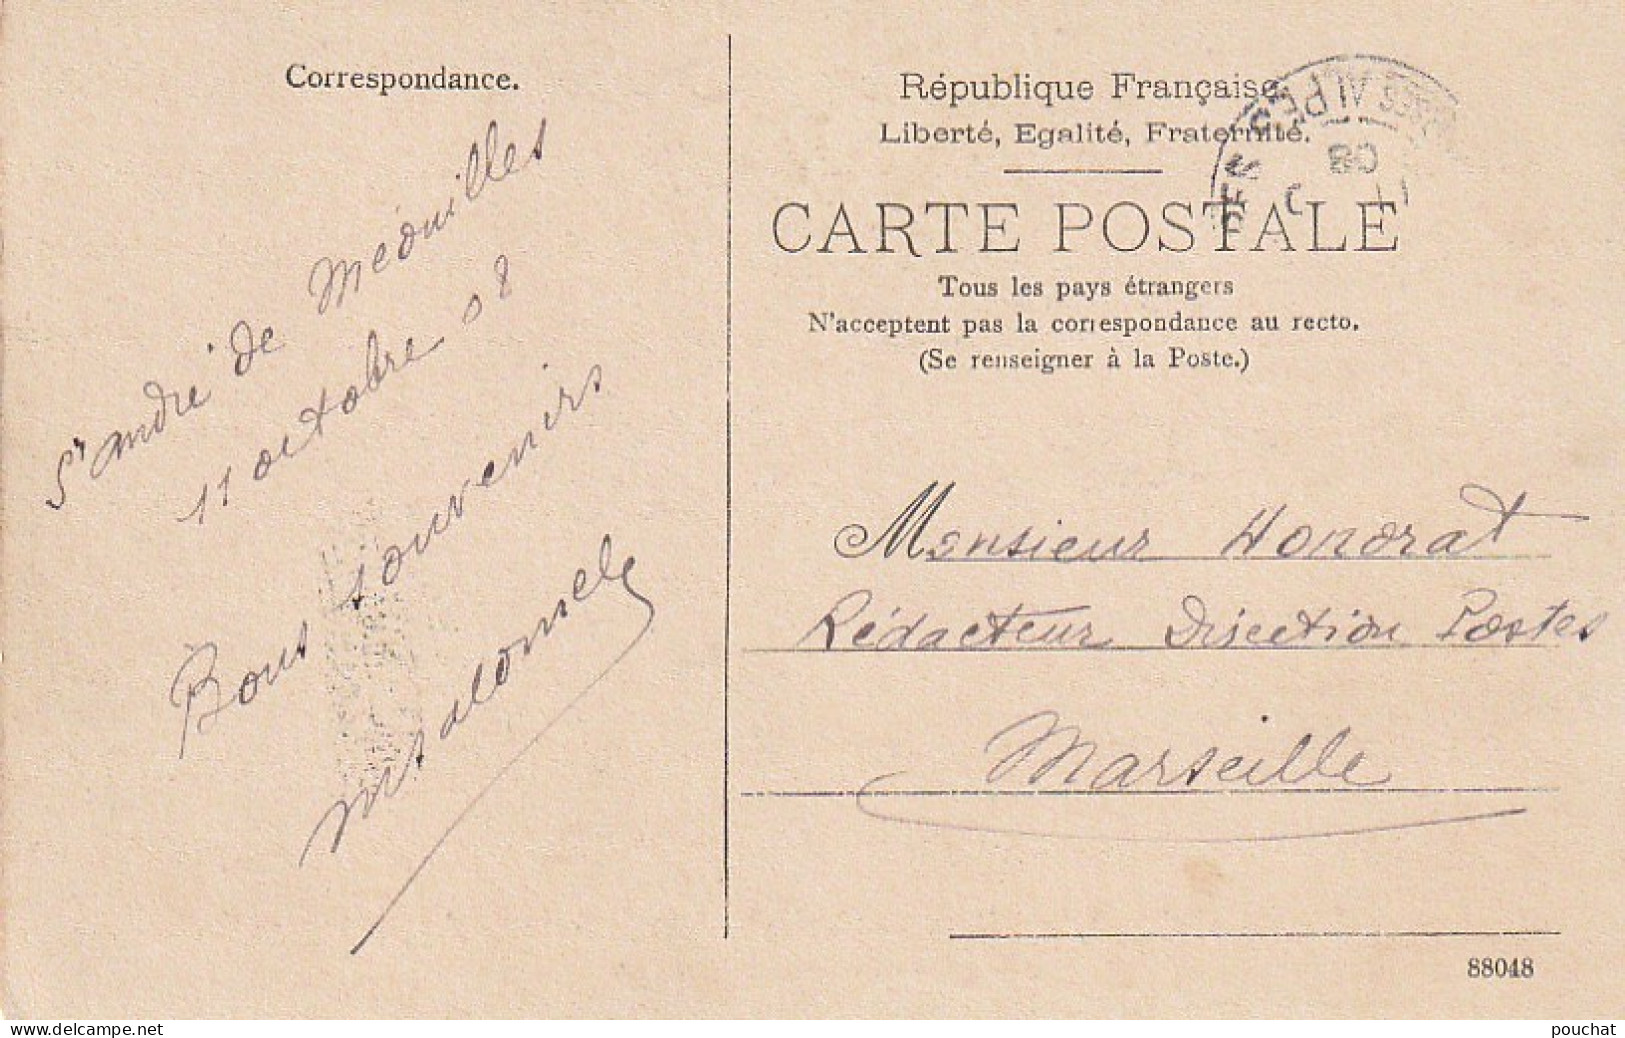 Correspondance.
St andré de Méouilles
11 octobre 08
Bons souvenirs
République Française
Liberté, Egalité, Fraternité.
CARTE POSTALE
Tous les pays étrangers
N'acceptent pas la correspondance au recto.
(Se renseigner à la Poste.)
SES ALPES
08
Monsieur Honorat
Rédacteur Direction Postes
Marseille
88048
www.delcampe.net
pouchat